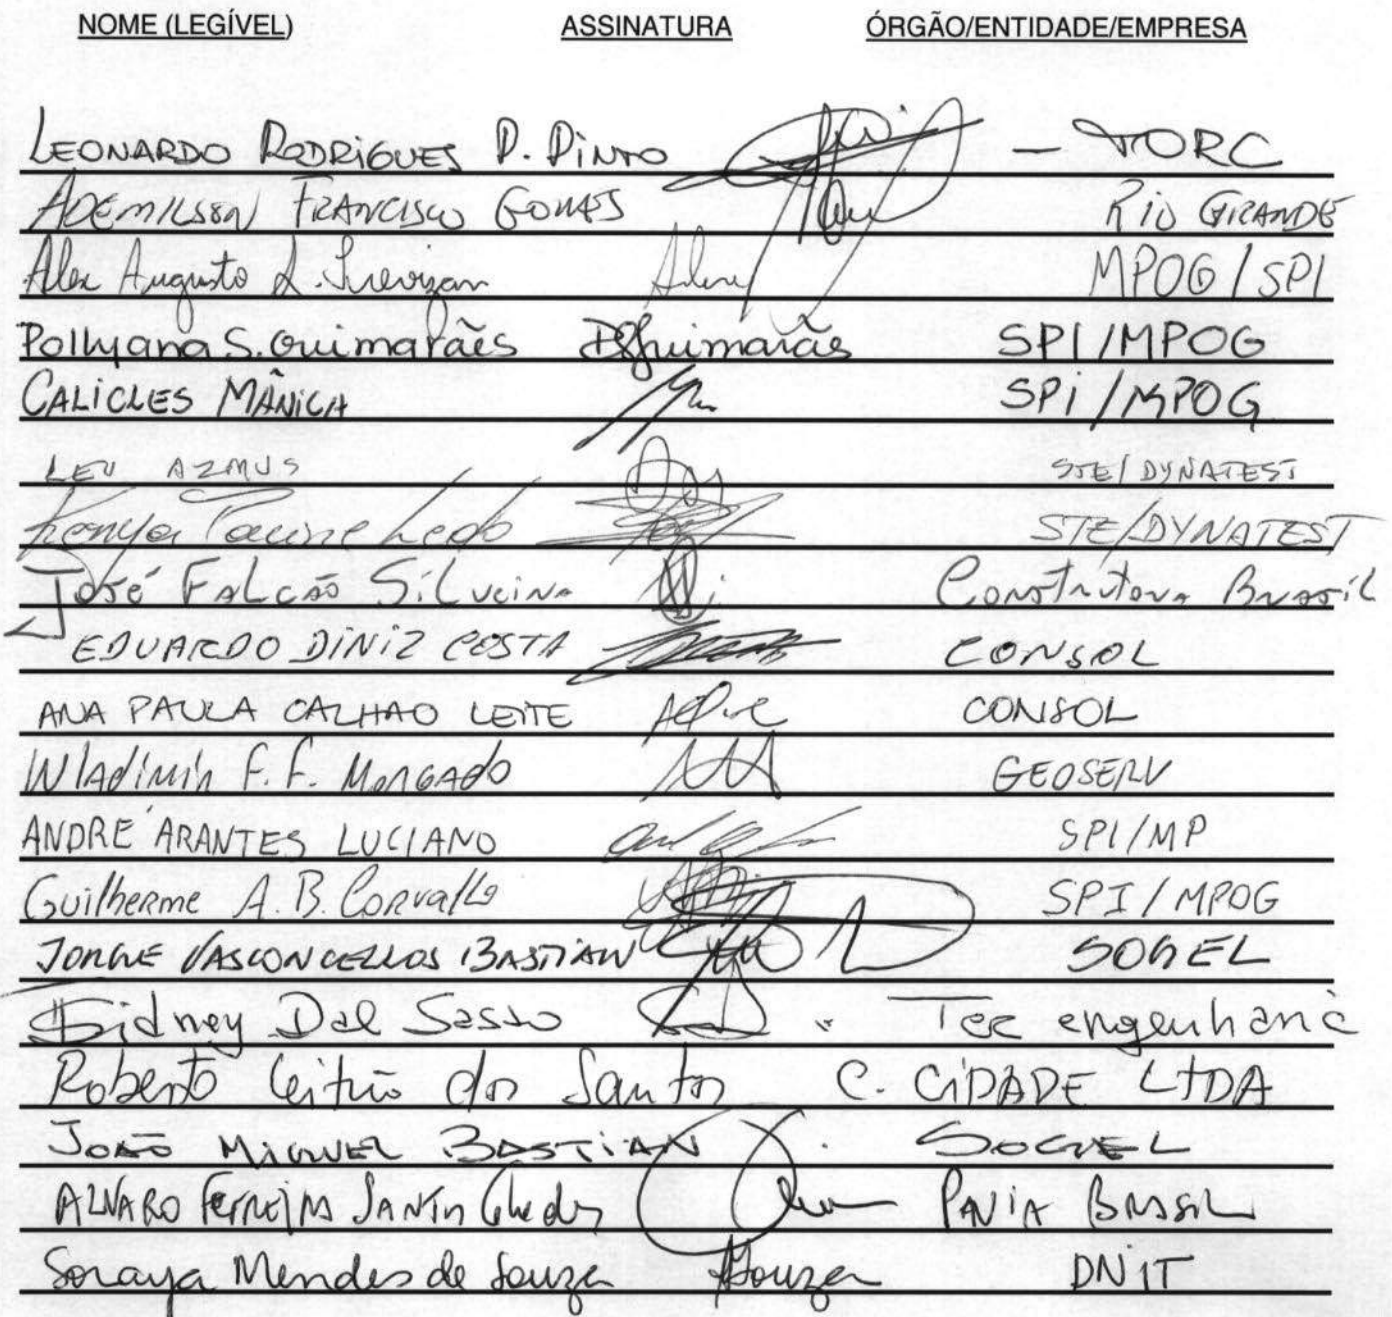 NOME (LEGÍVEL) ASSINATURA ÓRGÃO/ENTIDADE/EMPRESA
LEONARDO RODRIGUES P. PINTO — TORC
ADEMILSON FRANCISCO GOMES RIO GRANDE
Alex Augusto L. Trevizan MPOG / SPI
Pollyana S. Guimarães PSGuimarães SPI / MPOG
CALICLES MÂNICA SPI / MPOG
LEU AZMUS STE / DYNATEST
Kenya Ledo STE/DYNATEST
José FALCÃO Construtora Brasil
EDUARDO DINIZ COSTA CONSOL
ANA PAULA CALHAO LEITE CONSOL
Wladimir F. F. MORGADO GEOSERV
ANDRÉ ARANTES LUCIANO SPI/MP
Guilherme A. B. Corvallo SPI / MPOG
JORGE VASCONCELLOS BASTIAN SOGEL
Sidney Dal Sasso engenharia
Roberto Leitão dos Santos C. CIDADE LTDA
JOÃO MIGUEL BASTIAN SOGEL
ALVARO FERREIRA PAVIA BRASIL
Soraya Mendes de Souza Souza DNIT